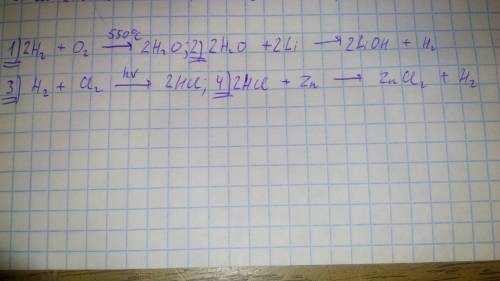 1) 2H₂ + O₂ →(550°C) 2H₂O; 2) 2H₂O + 2Li → 2LiOH + H₂
3) H₂ + Cl₂ →(hν) 2HCl; 4) 2HCl + Zn → ZnCl₂ + H₂